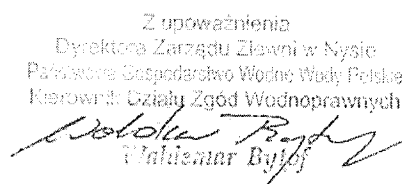 Z upoważnienia
Dyrektora Zarządu Zlewni w Nysie
Państwowe Gospodarstwo Wodne Wody Polskie
Kierownik Działu Zgód Wodnoprawnych
Waldemar